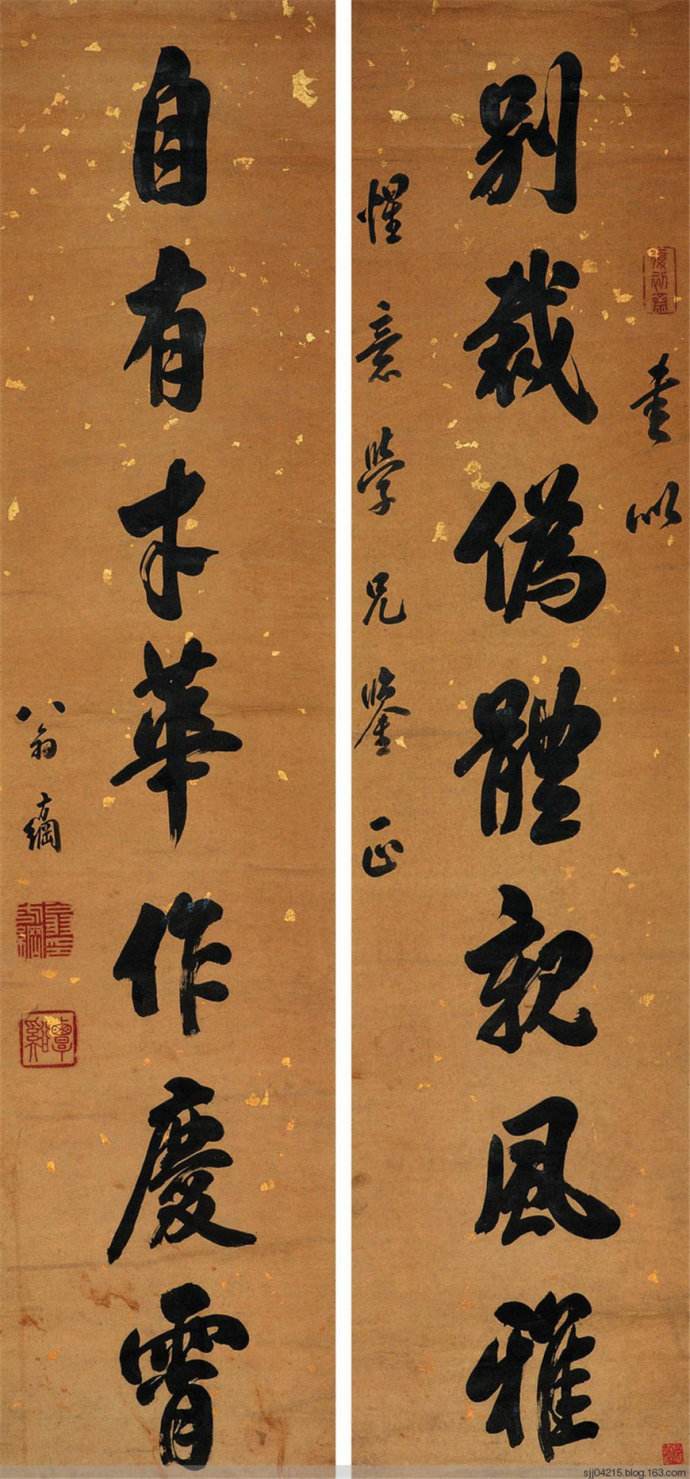 書似
别裁偽體親風雅
惺意學兄鑒正
自有才華作慶霄
翁方綱
覃谿
sjj04215.blog.163.com